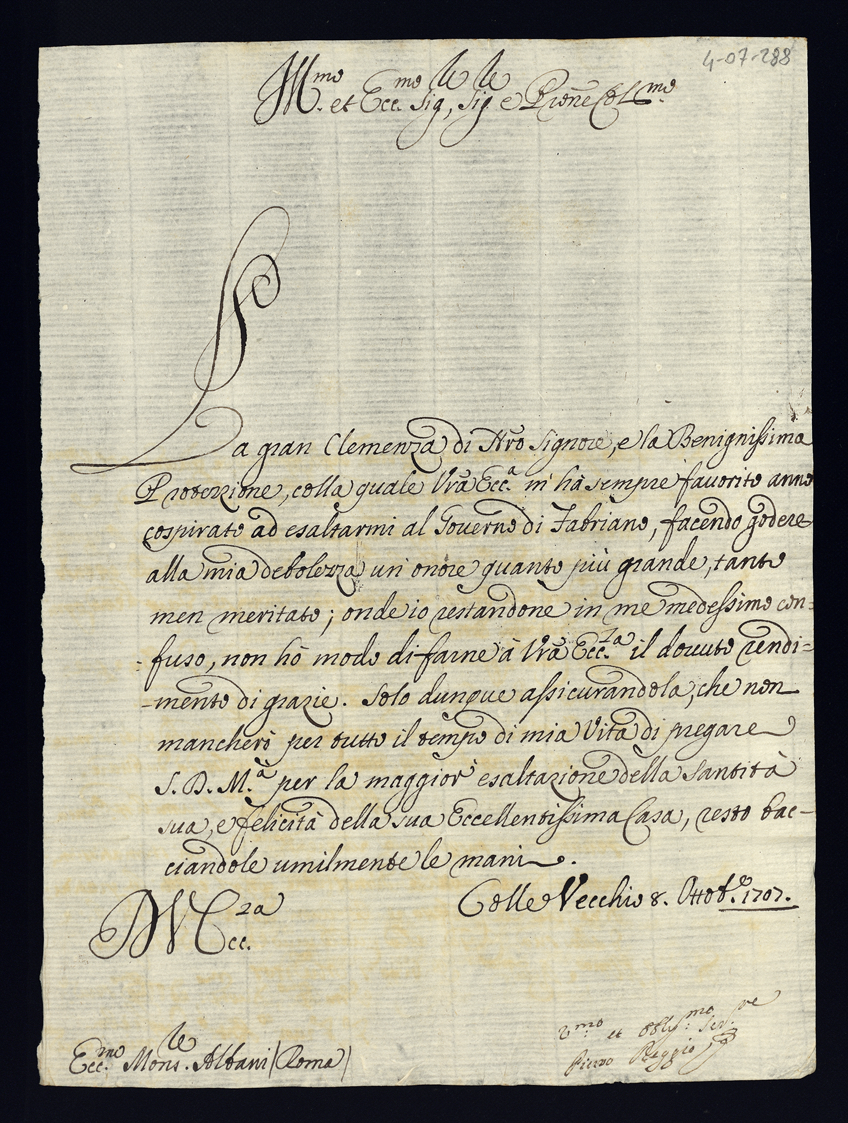 4-07-288
Ill.mo et Ecc.mo Sig.re, Sig.re e P̃rone Col.mo
La gran Clemenza di Nr̃o Signore, e la Benignissima
Protezzione, colla quale Vr̃a Ecc.a m'hà sempre favorito anno
cospirato ad esaltarmi al Governo di Fabriano, facendo godere
alla mia debolezza un'onore quanto più grande, tanto
men meritato; onde io restandone in me medessimo con-
-fuso, non hò modo di farne à Vr̃a Ecc.za il dovuto rendi-
-mento di grazie. Solo dunque assicurandola, che non
mancherò per tutto il tempo di mia Vita di pregare
S. D. M.à per la maggior esaltazione della Santità
sua, e felicità della sua Eccellentissima Casa, resto bac-
ciandole umilmente le mani.
Colle Vecchio 8. Ottob.e 1707.
D V Ecc.za
Vmo et Obbl.mo Ser.re
Ecc.mo Mons.le Albani (Roma)
Pietro Reggio